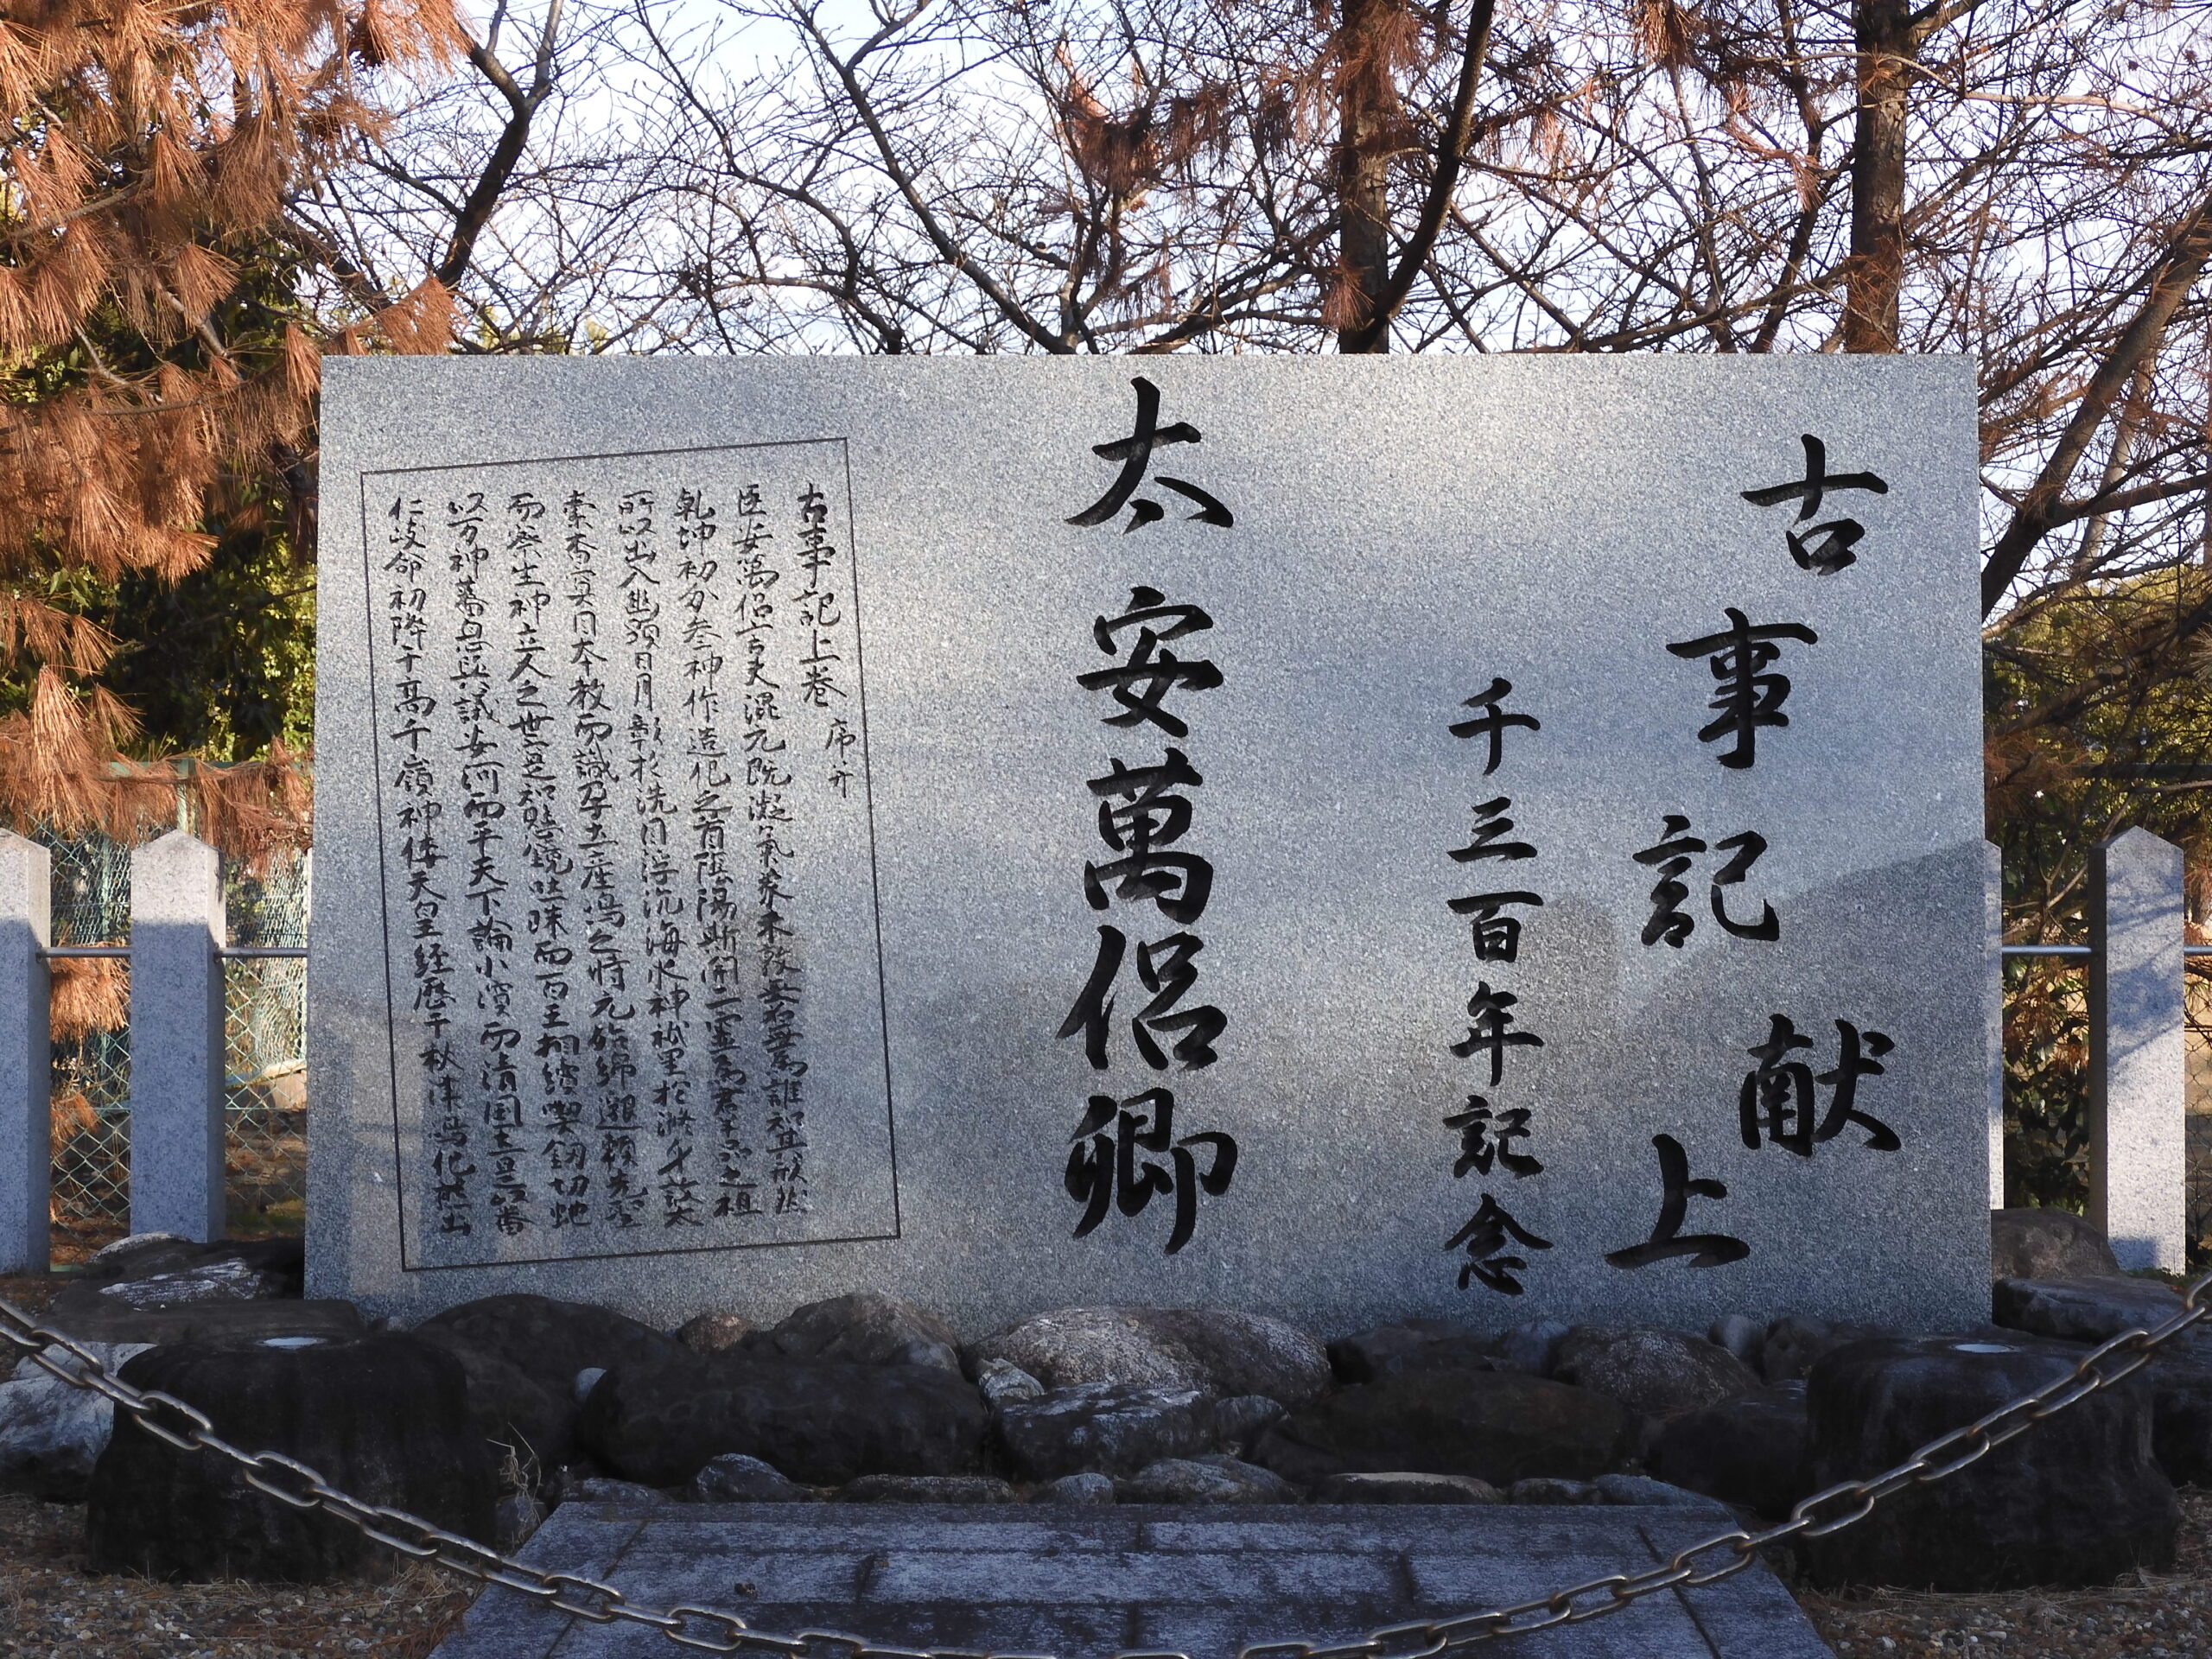 古事記献上
千三百年記念
太安萬侶卿
古事記上巻 序并
臣安萬侶言夫混元既凝氣象未效無名無爲誰知其形然
乾坤初分参神作造化之首陰陽斯開二霊爲群品之祖
所以出入幽顕日月彰於洗目浮沉海水神祇呈於滌身故太
素杳冥因本教而識孕土産嶋之時元始綿邈頼先聖
而察生神立人之世寔知懸鏡吐珠而百王相續喫釼切蛇
以万神蕃息與議安河而平天下論小濱而清国土是以番
仁岐命初降于高千嶺神倭天皇經歴于秋津嶋化熊出